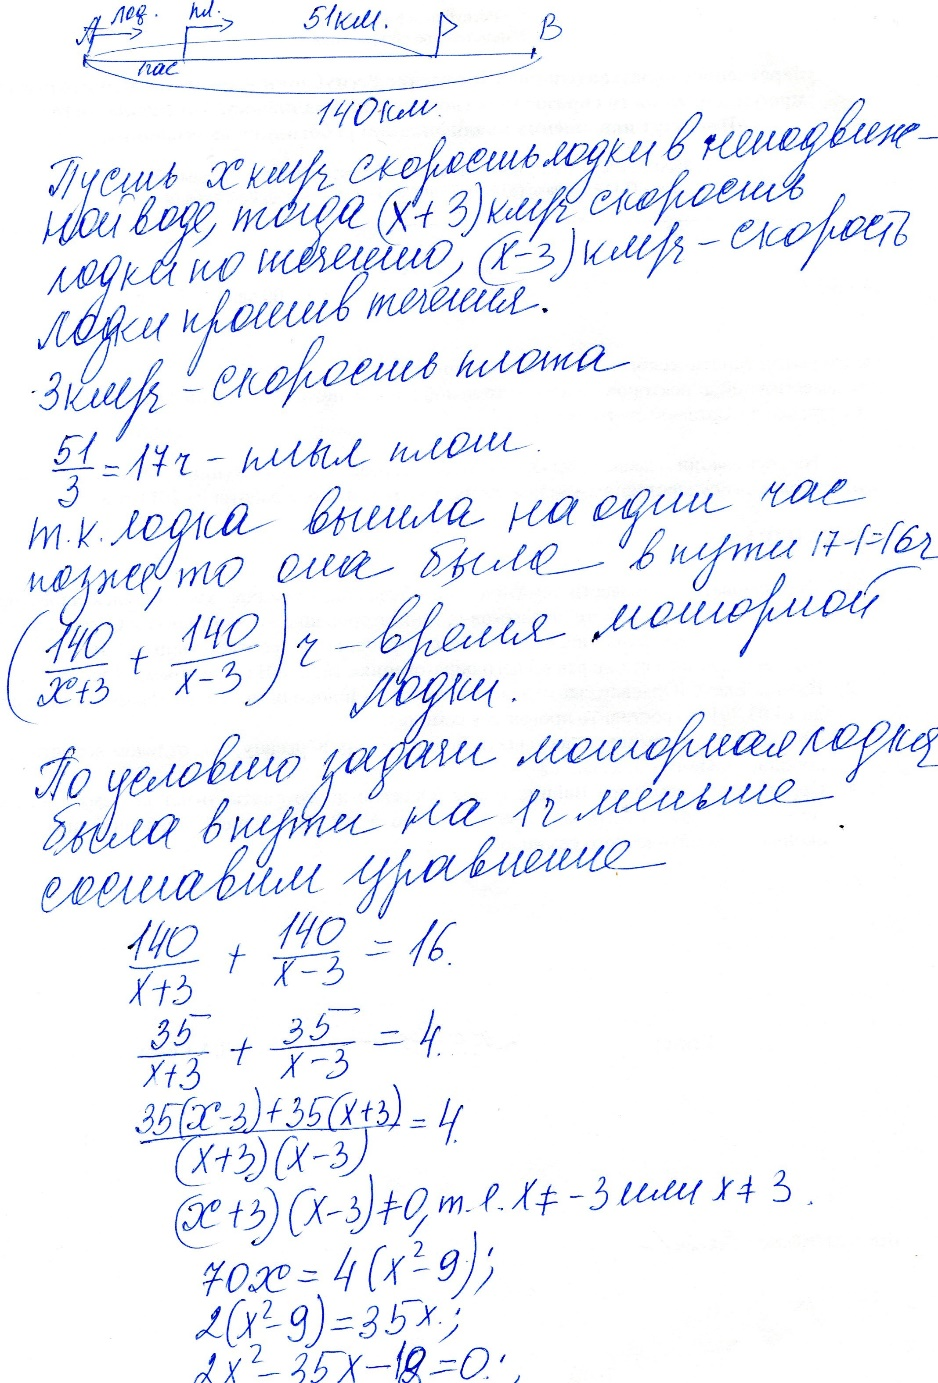 А лод. пл. 51км. В
час
140км
Пусть х км/ч скорость лодки в неподвиж-
ной воде, тогда (х+3) км/ч скорость
лодки по течению, (х-3) км/ч - скорость
лодки против течения.
3 км/ч - скорость плота
51/3 = 17 ч - плыл плот.
т.к. лодка вышла на один час
позже, то она была в пути 17-1=16ч
(140/(х+3) + 140/(х-3)) ч - время моторной
лодки.
По условию задачи моторная лодка
была в пути на 1ч меньше
составим уравнение
140/(х+3) + 140/(х-3) = 16.
35/(х+3) + 35/(х-3) = 4.
(35(х-3)+35(х+3))/((х+3)(х-3)) = 4.
(х+3)(х-3)≠0, т.е. х≠-3 или х≠3.
70х = 4(х²-9);
2(х²-9)=35х.;
2х²-35х-18=0.;